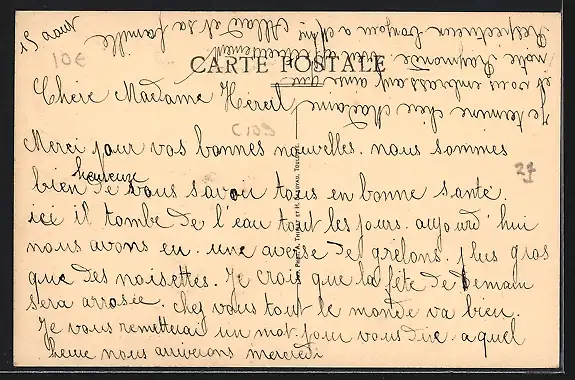 15 aout
10€
CARTE POSTALE
Chère Madame Héreil
C109
Merci pour vos bonnes nouvelles. nous sommes
27
heureux
bien de vous savoir tous en bonne santé.
ici il tombe de l'eau tout les jours. aujourd'hui
nous avons eu. une averse de grêlons. plus gros
que des noisettes. Je crois que la fête de demain
sera arrosée. chez vous tout le monde va bien.
Je vous remetterai un mot. pour vous dire. a quel
heure nous arriverons mercredi
Je termine cher Madame
et vous embrassant ainsi que
notre Raymonde affectueusement
Respectueux bonjour a Mr
Allard et sa famille